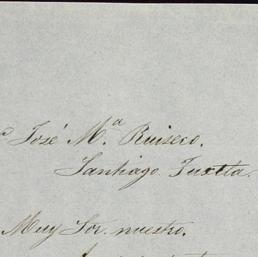 José M.ª Ruiseco.
Santiago Tuxtla.
Muy Sor. nuestro,